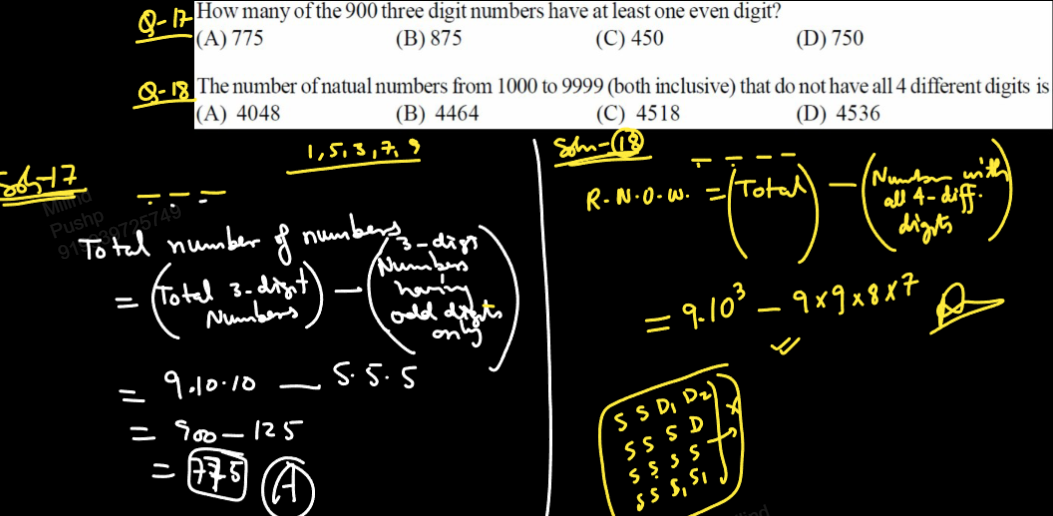 Q-17 How many of the 900 three digit numbers have at least one even digit?
(A) 775 (B) 875 (C) 450 (D) 750
Q-18 The number of natual numbers from 1000 to 9999 (both inclusive) that do not have all 4 different digits is
(A) 4048 (B) 4464 (C) 4518 (D) 4536
Soln-17
1,5,3,7,9
Milind
Pushp
Total number of numbers
= (Total 3-digit Numbers) − (3-digit Numbers having odd digits only)
= 9.10.10 − 5.5.5
= 900 − 125
= 775 (A)
Soln-(18)
R.N.O.W. = (Total) − (Number with all 4-diff. digits)
= 9.10³ − 9×9×8×7
S S D₁ D₂
S S S D
S S S S
S S S₁ S₁